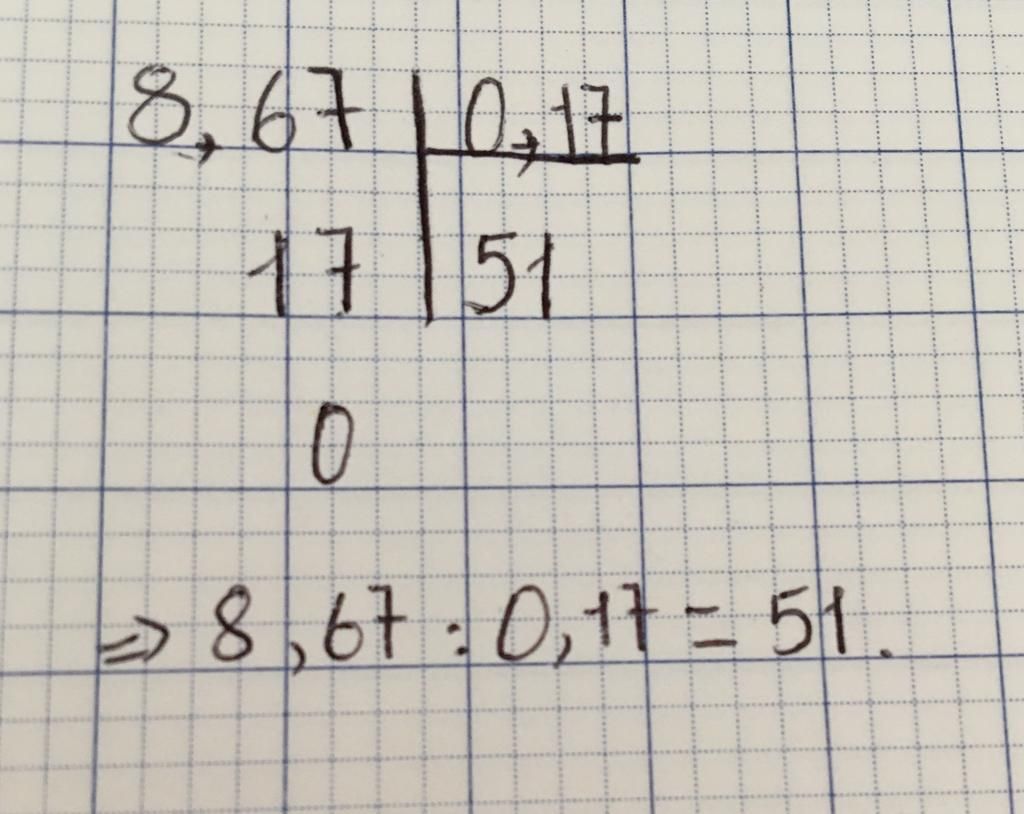 8,67 | 0,17
17 | 51
0
⇒ 8,67 : 0,17 = 51.